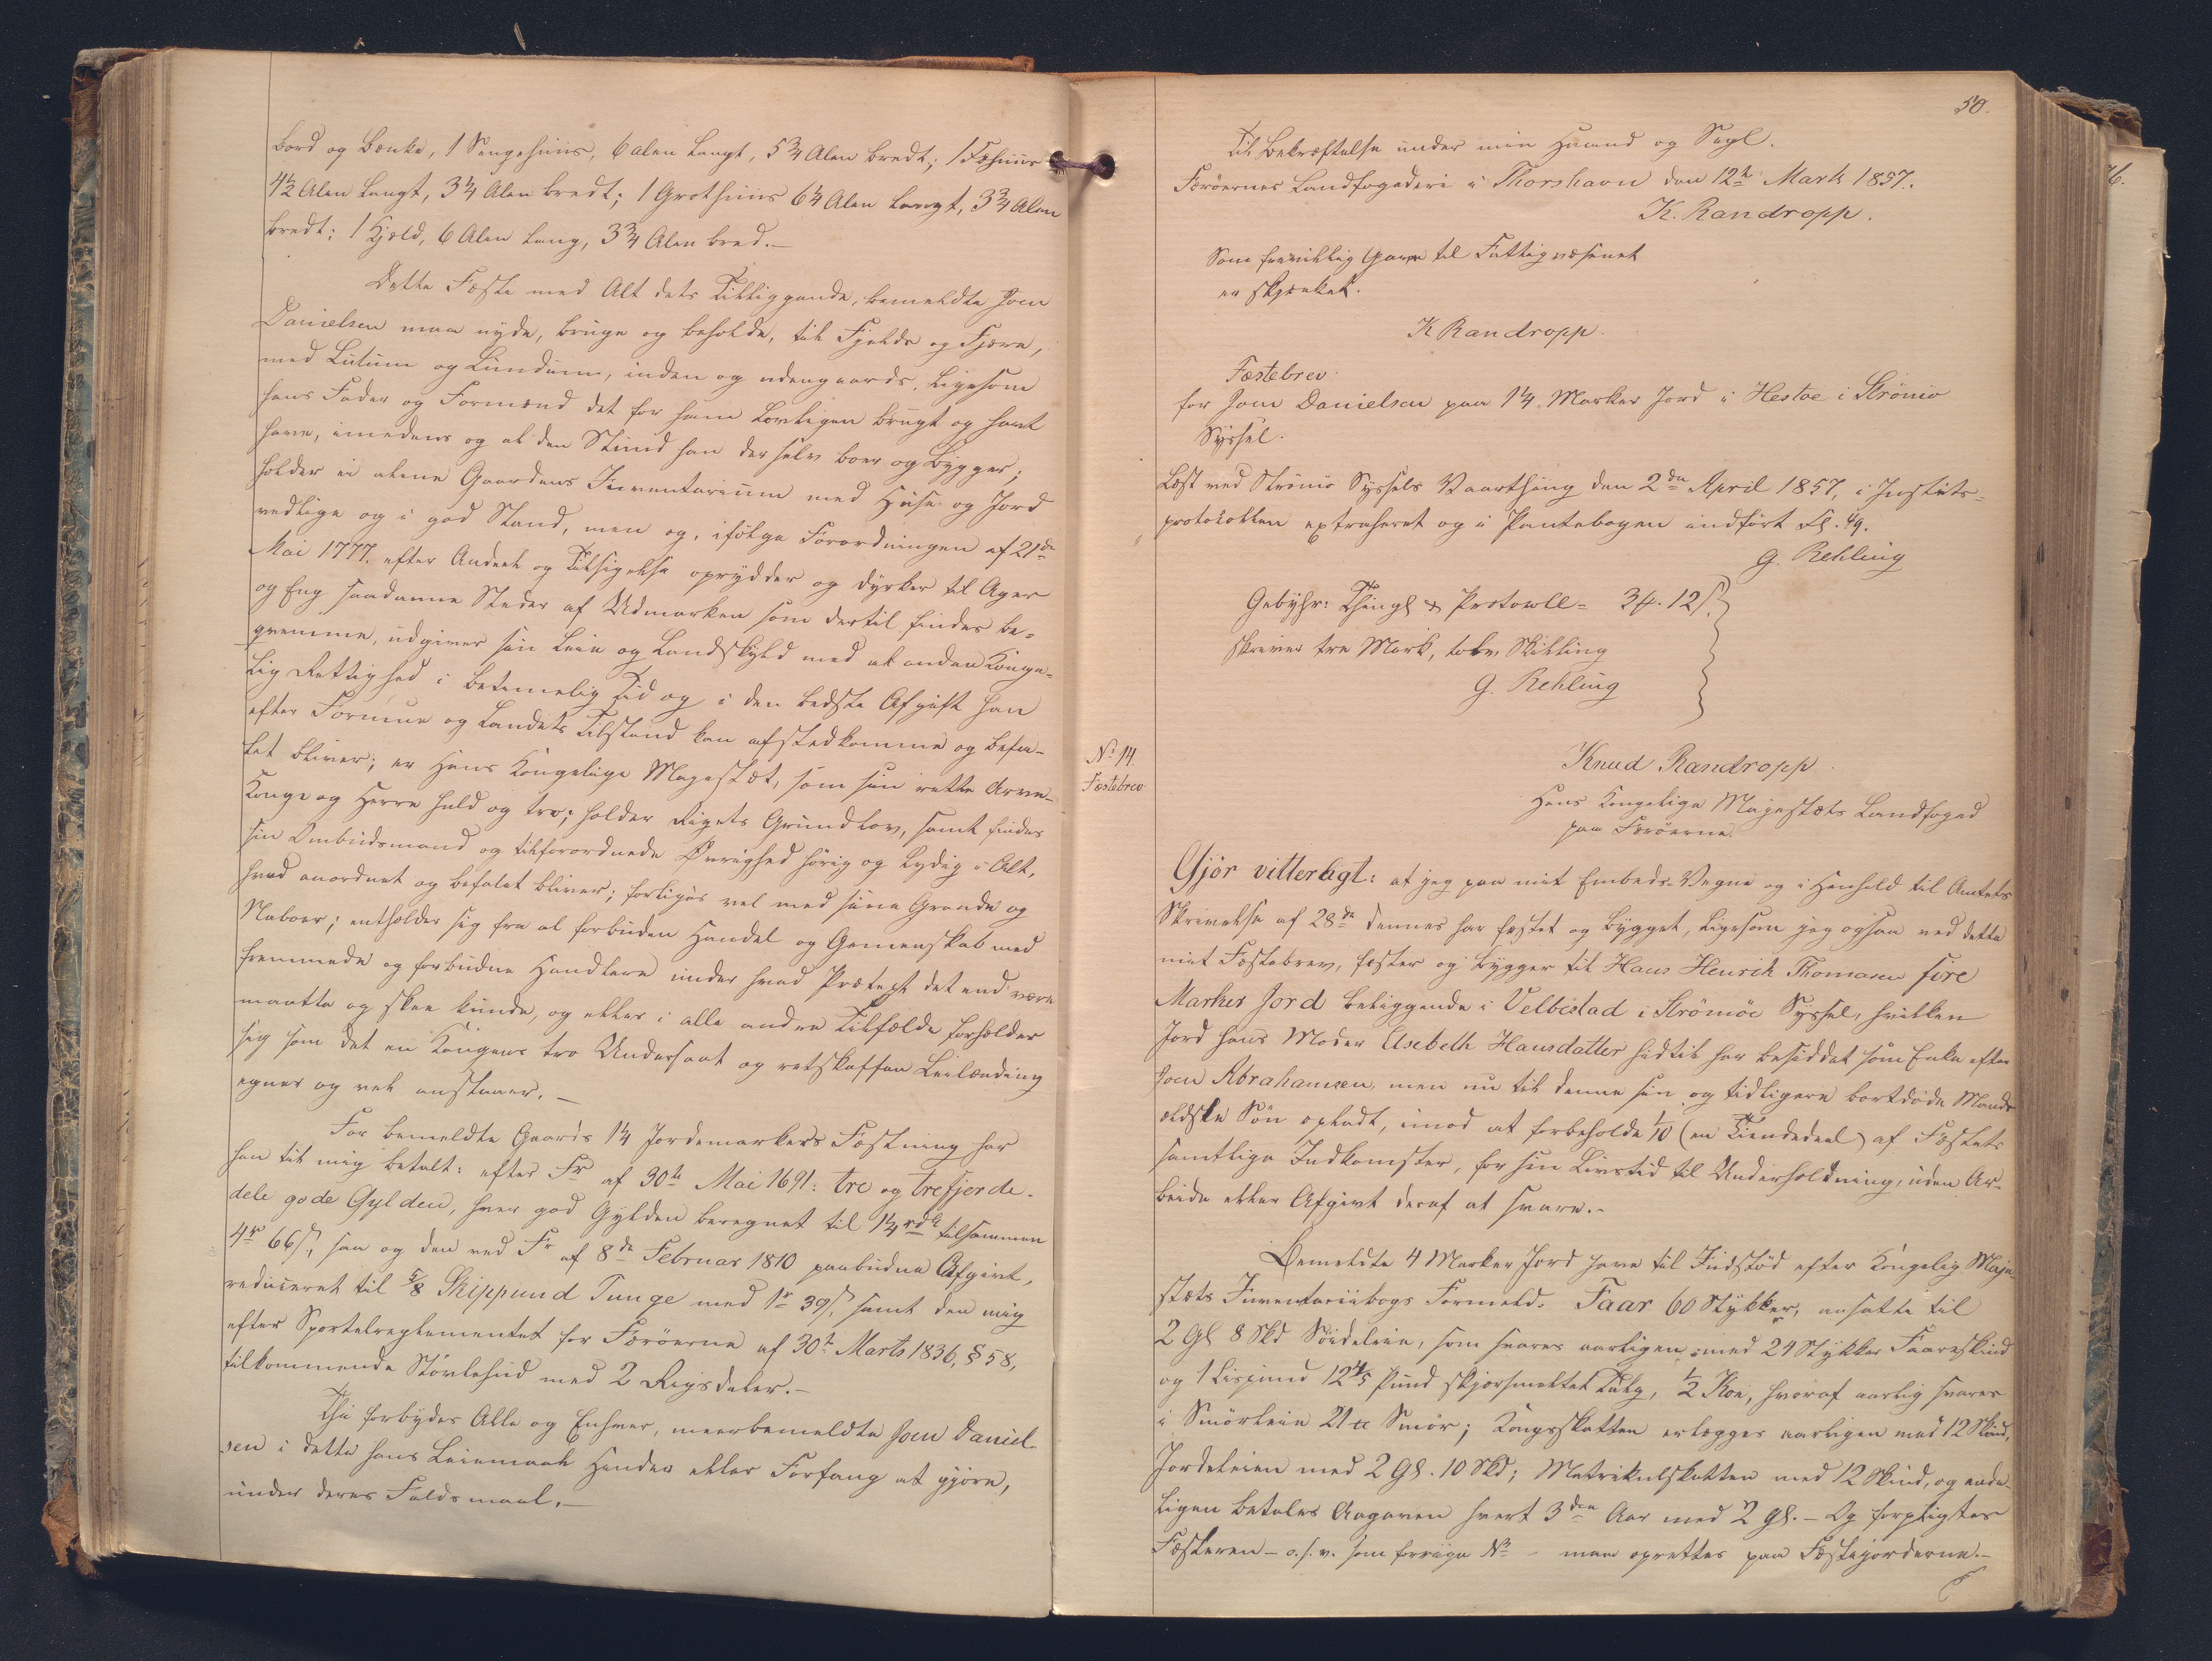 Bord og Bænke, 1 Sengehuus, 6 Alen langt, 5¾ Alen bredt; 1 Fæhuus
4½ Alen langt, 3¼ Alen bredt; 1 Grothuus 6¼ Alen langt, 3¾ Alen
bredt; 1 Hjeld, 6 Alen lang, 3¾ Alen bred.—
Dette Fæste med Alt dets Tilliggende, bemeldte Joen
Danielsen maa nyde, bruge og beholde, til Fjelds og Fjære,
med Lutum og Lundum, inden og udengaards, ligesom
hans Fader og Formænd det før ham lovligen brugt og havt
have, imedens og al den Stund han der selv boer og bygger;
holder ei alene Gaardens Inventarium med Huse og Jord
vedlige og i god Stand, men og, ifølge Forordningen af 21de
Mai 1777, efter Andeel og Tilsigelse oprydder og dyrker til Ager
og Eng saadanne Steder af Udmarken som dertil findes be-
qvemme, udgiver sin Leie og Landskyld med al anden Konge-
lig Rettighed i betimelig Tid og i den bedste Afgift han
efter Formue og Landets Tilstand kan afstedkomme og befa-
let bliver; er Hans Kongelige Majestæt, som sin rette Arve-
Konge og Herre huld og tro; holder Rigets Grundlov, samt findes
sin Ombudsmand og tilforordnede Øvrighed hørig og lydig i Alt,
hvad anordnet og befalet bliver; forliges vel med sine Grande og
Naboer; entholder sig fra al forbuden Handel og Gemenskab med
fremmede og forbudne Handlere under hvad Prætext det end være
maatte og skee kunde, og ellers i alle andre Tilfælde forholder
sig som det en Kongens tro Undersaat og retskaffen Leilænding
egner og vel anstaaer.—
For bemeldte Gaards 1¼ Jordemarkers Fæstning har
han til mig betalt: efter Fr af 30te Mai 1691: tre og trefjerde-
dele gode Gylden, hver god Gylden beregnet til 1¼ rdl tilsammen
4rd 66s, saa og den ved Fr af 8de Februar 1810 paabudne Afgivt,
reduceret til ⅝ Skippund Tunge med 1r 39s, samt den mig
efter Sportelreglementet for Færøerne af 30te Marts 1836, § 58,
tilkommende Støvlehud med 2 Rigsdaler.—
Thi forbydes Alle og Enhver, meerbemeldte Joen Daniel-
sen i dette hans Leiemaal Hinder eller Forfang at gjøre,
under deres Faldsmaal.—
50.
Til Bekræftelse under min Haand og Segl.
Færöernes Landfogederi i Thorshavn den 12te Marts 1857.
K. Randropp.
Som frivillig Gave til Fattigvæsenet
er skjænket.
K Randropp.
Fæstebrev
for Joen Danielsen paa 1¼ Marker Jord i Hestøe i Strömö
Syssel.
Læst ved Strömö Syssels Vaarthing den 2den April 1857, i Justits-
protokollen extraheret og i Pantebogen indført Fl. 49.
G. Rehling
Gebyhr: Thingl & Protocoll= 3 #. 12 s
skriver tre Mark, tolv Skilling
G. Rehling
No 14.
Fæstebrev
Knud Randropp
Hans Kongelige Majestæts Landfoged
paa Færöerne.
Gjör vitterligt: at jeg paa mit Embeds-Vegne og i Henhold til Amtets
Skrivelse af 28de dennes har fæstet og bygget, ligesom jeg ogsaa ved dette
mit Fæstebrev, fæster og bygger til Hans Henrik Thomasen fire
Marker Jord beliggende i Velbestad i Strömöe Syssel, hvilken
Jord hans Moder Elsebeth Hansdatter hidtil har besiddet som Enke efter
Joen Abrahamsen, men nu til denne sin og tidligere bortdøde Mands
ældste Søn opladt, imod at forbeholde 1/10 (en Tiendedeel) af Fæstets
samtlige Indkomster, for sin Livstid til Underholdning, uden Ar-
beide eller Afgivt deraf at svare.—
Bemeldte 4 Marker Jord have til Indstød efter Kongelig Maje-
stæts Inventariibogs Formeld: Faar 60 Stykker, ansatte til
2 Gl 8 Skd Söideleie, som svares aarligen med 24 Stykker Faareskind
og 1 Lispund 12⅘ Pund skjørsmeltet Talg, ½ Koe, hvoraf aarlig svares
i Smörleie 21 ℔ Smør; Kongsskatten erlægges aarligen med 12 Skind,
Jordeleien med 2 Gl. 10 Skd; Matrikulskatten med 12 Skind, og ende-
ligen betales Aagaven hvert 3die Aar med 2 Gl.— Og forpligtes
Fæsteren— o.s.v. som forrige No — maa oprettes paa Fæstejorderne.—